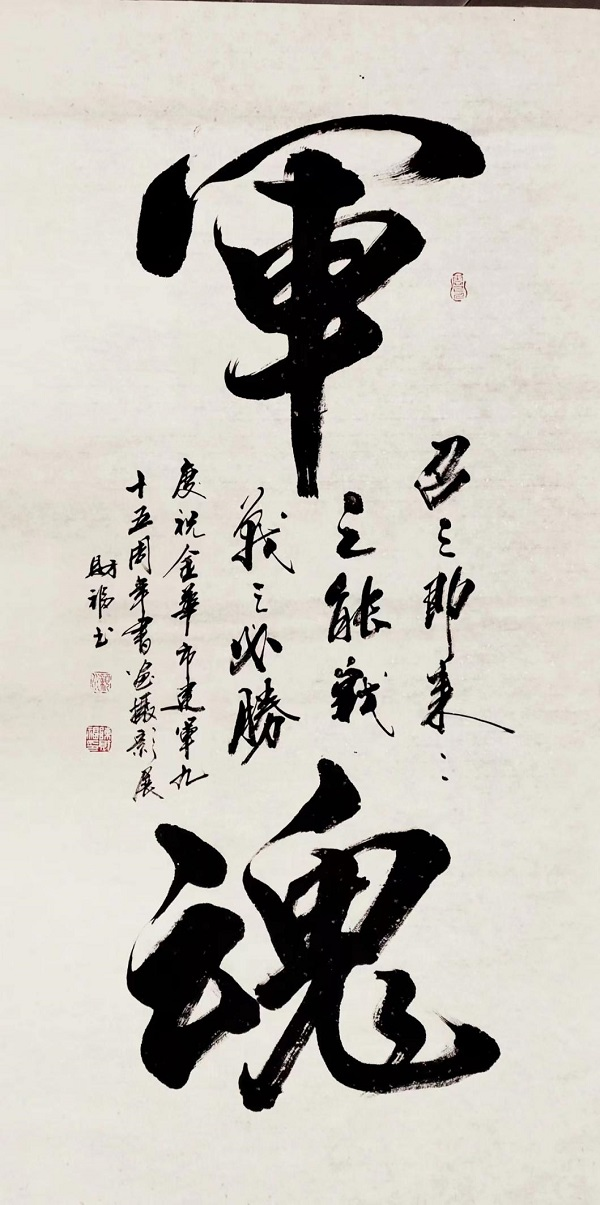 軍魂
召之即来〻
之能戰
戰之必勝
慶祝金華市建軍九
十五周年書画攝影展
財福书